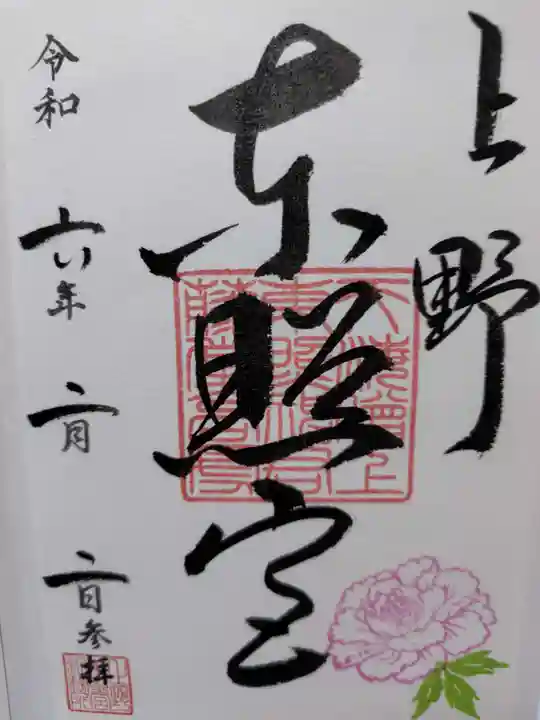 上野
東照宮
令和六年二月二日参拝